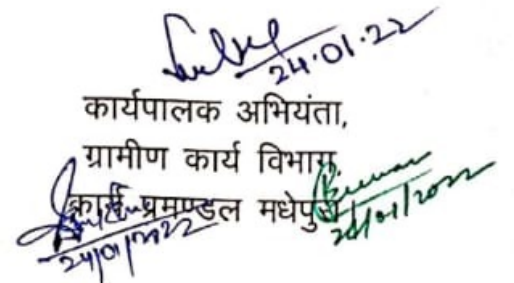 24.01.22
कार्यपालक अभियंता,
ग्रामीण कार्य विभाग
कार्य प्रमण्डल मधेपुरा
24/01/2022
24/01/2022